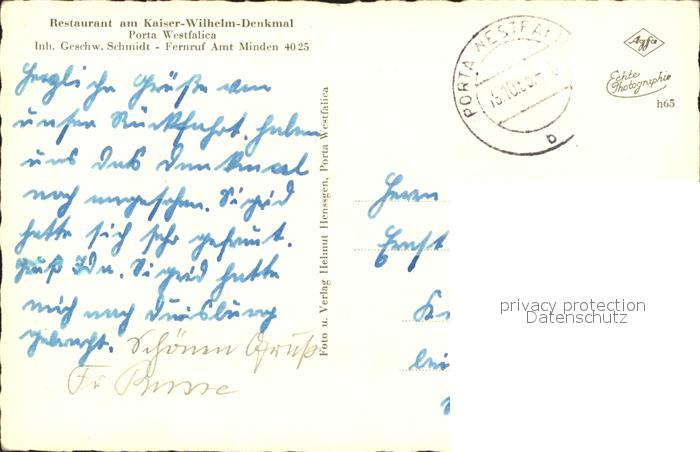 Restaurant am Kaiser-Wilhelm-Denkmal
Porta Westfalica
Inh. Geschw. Schmidt - Fernruf Amt Minden 4025
Herzliche Grüße von
unser Rückfahrt, haben
uns das Denkmal
noch angesehen. Sigrid
hatte sich sehr gefreut.
Gruß Ida. Sigrid hatte
mich nach Duisburg
gebracht. Schönen Gruß
Fr
Foto u. Verlag Helmut Henssgen, Porta Westfalica
PORTA WESTFALICA
b
Agfa
Echte
Photographie
h65
Herrn
Ernst
privacy protection
Datenschutz